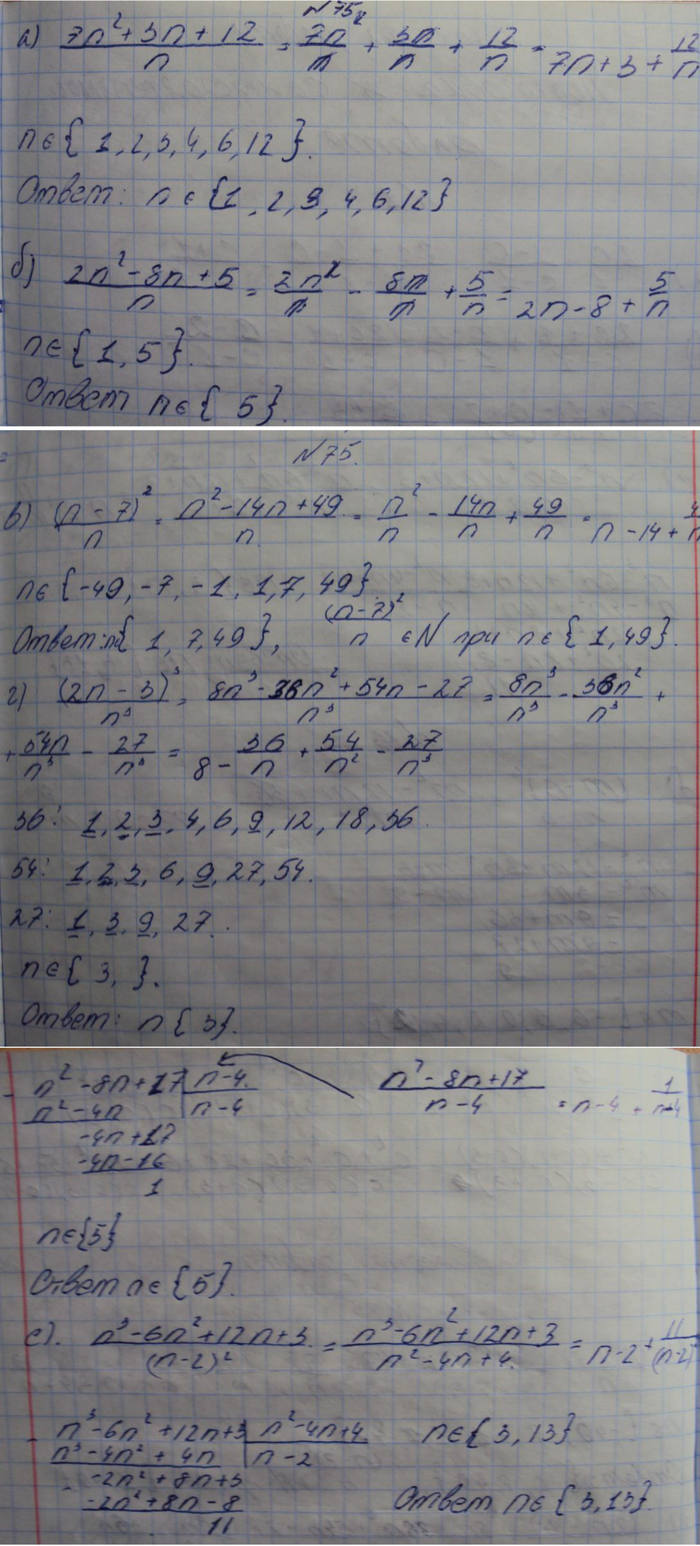 N75
а) (7n²+3n+12)/n = 7n²/n + 3n/n + 12/n = 7n+3+12/n
n∈{1,2,3,4,6,12}.
Ответ: n∈{1,2,3,4,6,12}
б) (2n²-8n+5)/n = 2n²/n - 8n/n + 5/n = 2n-8+5/n
n∈{1,5}.
Ответ n∈{5}.
N75.
в) (n-7)²/n = (n²-14n+49)/n = n²/n - 14n/n + 49/n = n-14+
n∈{-49,-7,-1,1,7,49}.
Ответ: n{1,7,49}, (n-7)²/n ∈N при n∈{1,49}.
г) (2n-3)³/n³ = (8n³-36n²+54n-27)/n³ = 8n³/n³ - 36n²/n³ +
+ 54n/n³ - 27/n³ = 8 - 36/n + 54/n² - 27/n³
36: 1,2,3,4,6,9,12,18,36.
54: 1,2,3,6,9,27,54.
27: 1,3,9,27.
n∈{3,}.
Ответ: n{3}.
- n²-8n+17 | n-4 (n²-8n+17)/(n-4) = n-4+1/(n-4)
n²-4n | n-4
-4n+17
-4n-16
1
n∈{5}
Ответ n∈{5}.
е). (n³-6n²+12n+3)/(n-2)² = (n³-6n²+12n+3)/(n²-4n+4) = n-2+11/(n-2)²
- n³-6n²+12n+3 | n²-4n+4 n∈{3,13}
n³-4n²+4n | n-2
-2n²+8n+3
-2n²+8n-8 Ответ n∈{3,13}.
11